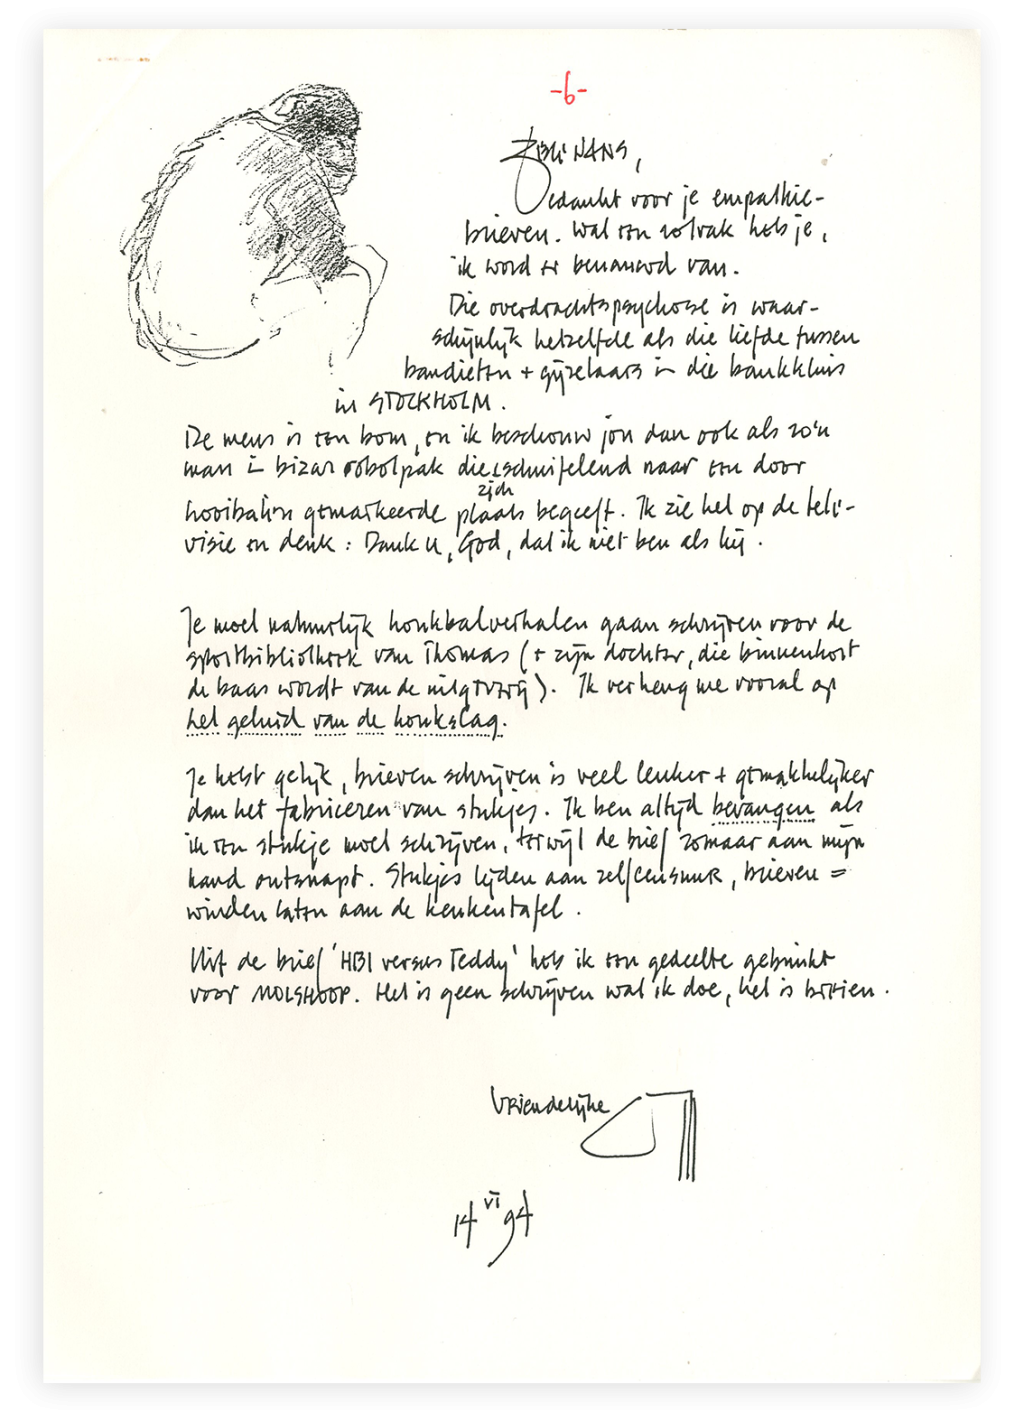 -6-
NANS,
Bedankt voor je empathie-
brieven. Wat een rotvak heb je,
ik word er benauwd van.
Die overdrachtspsychose is waar-
schijnlijk hetzelfde als die liefde tussen
bandieten + gijzelaars in die bankkluis
in STOCKHOLM.
De mens is een bom, en ik beschouw jou dan ook als zo'n
man in bizar robotpak die, schuifelend naar een door
hooibalen gemarkeerde plaats zich begeeft. Ik zie het op de tele-
visie en denk: Dank U, God, dat ik niet ben als hij.
Je moet natuurlijk honkbalverhalen gaan schrijven voor de
sportbibliotheek van Thomas (+ zijn dochter, die binnenkort
de baas wordt van de uitgeverij). Ik verheug me vooral op
het geluid van de honkslag.
Je hebt gelijk, brieven schrijven is veel leuker + gemakkelijker
dan het fabriceren van stukjes. Ik ben altijd bevangen als
ik een stukje moet schrijven, terwijl de brief zomaar aan mijn
hand ontsnapt. Stukjes lijden aan zelfcensuur, brieven =
winden laten aan de keukentafel.
Uit de brief 'HBI versus Teddy' heb ik een gedeelte gebruikt
voor MOLSHOOP. Het is geen schrijven wat ik doe, het is
Vriendelijke
14 VI 94